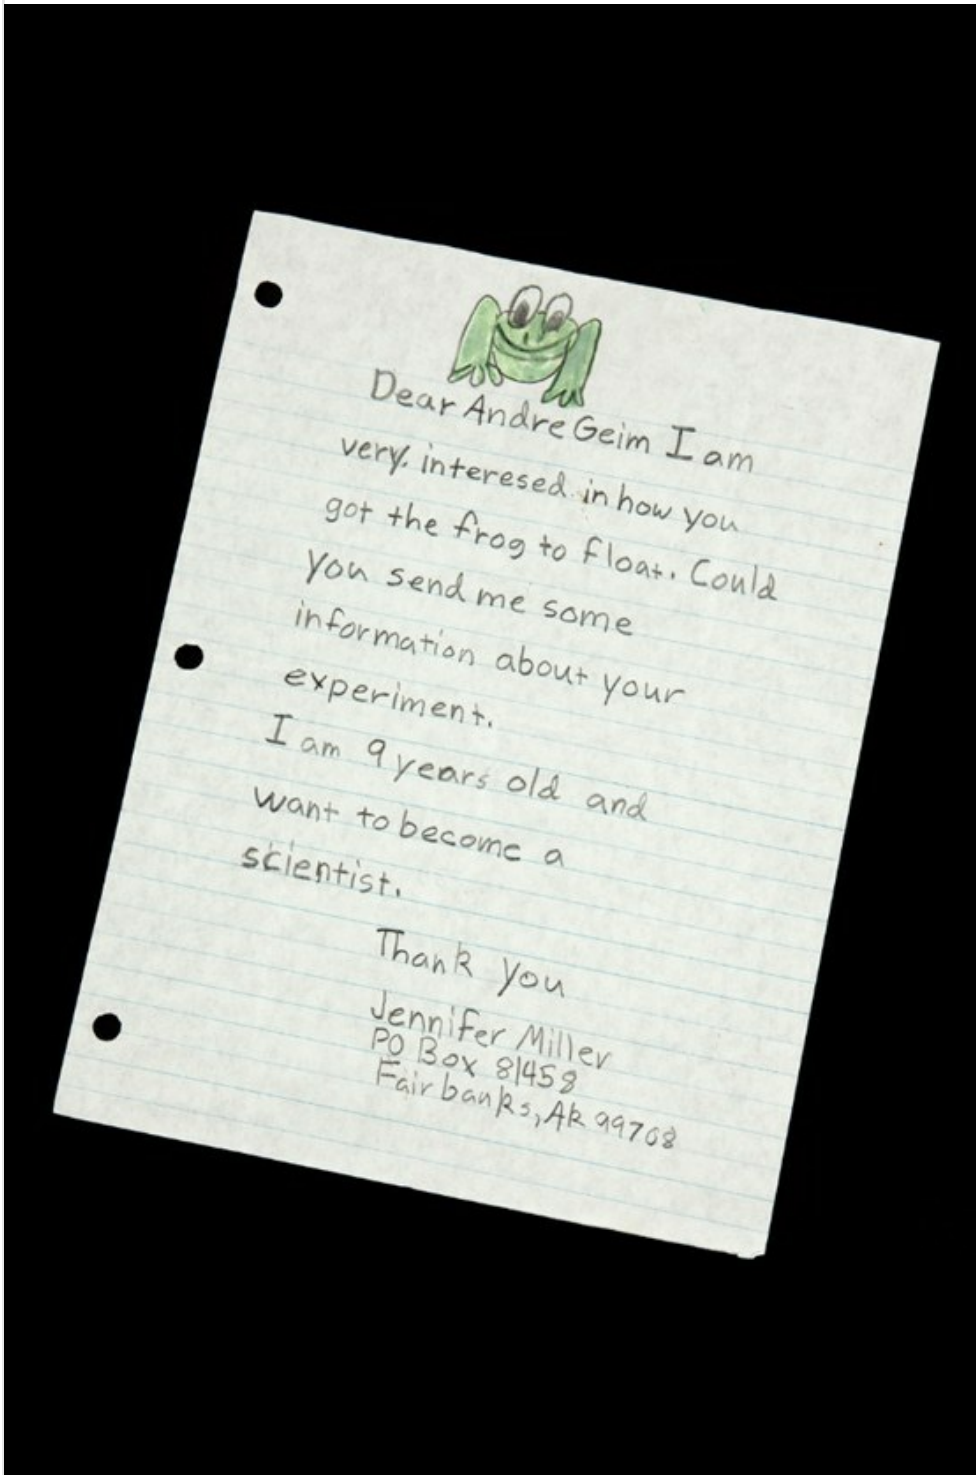 Dear Andre Geim I am
very interesed in how you
got the frog to float. Could
you send me some
information about your
experiment.
I am 9 years old and
want to become a
scientist.
Thank you
Jennifer Miller
PO Box 81458
Fairbanks, AK 99708